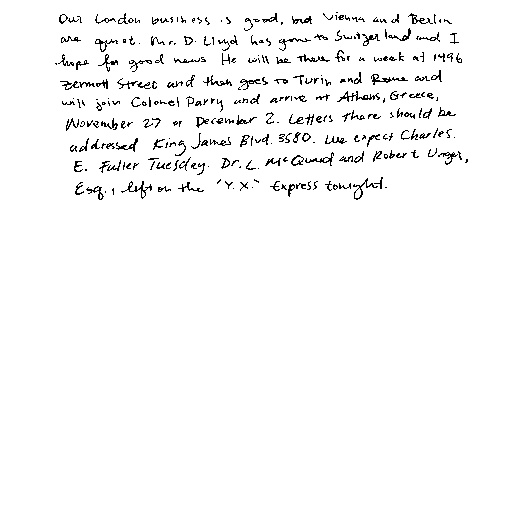 Our London business is good, but Vienna and Berlin
are quiet. Mr. D. Lloyd has gone to Switzerland and I
hope for good news He will be there for a week at 1496
Zermott Street and then goes to Turin and Rome and
will join Colonel Parry and arrive at Athens, Greece,
November 27 or December 2. Letters there should be
addressed King James Blvd. 3580. We expect Charles.
E. Fuller Tuesday. Dr. L. McQuaid and Robert Unger,
Esq., left on the "Y.X." Express tonight.